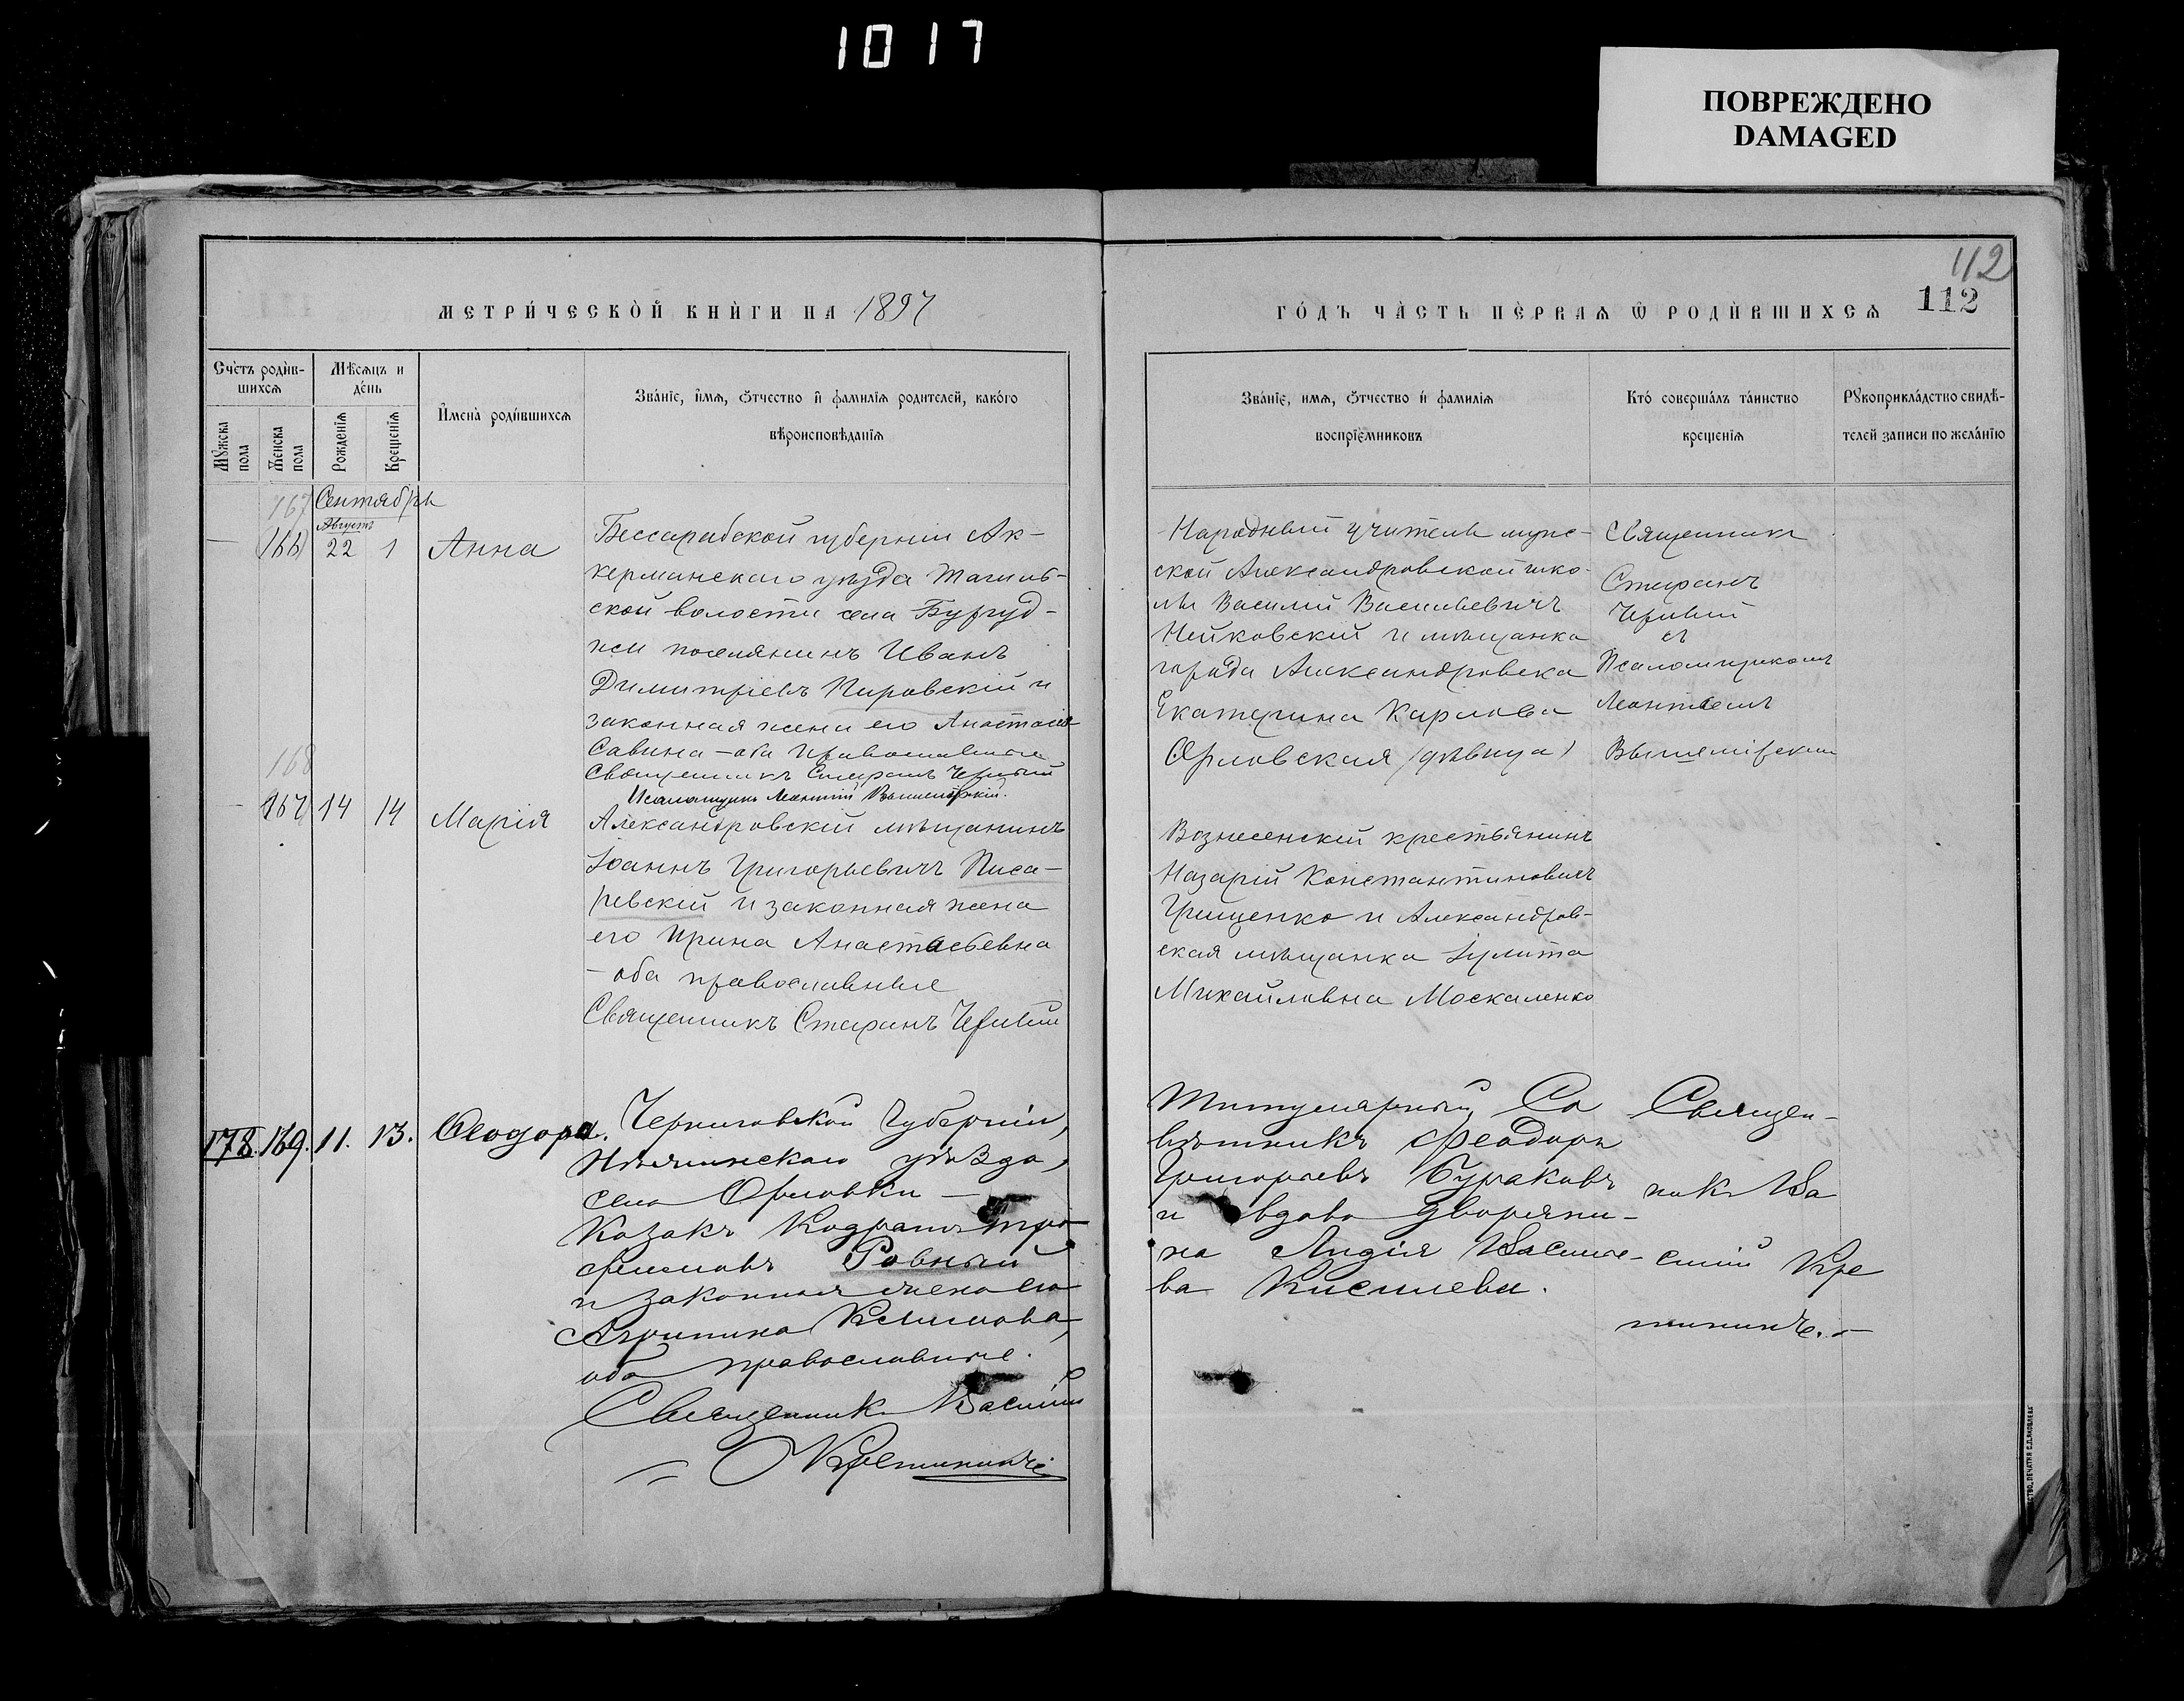 1017
ПОВРЕЖДЕНО
DAMAGED
112
МЕТРИ́ЧЕСКОЙ КНИ́ГИ НА 1897
ГО́ДЪ ЧА́СТЬ ПЕ́РВАѦ Ѿ РОДИ́ВШИХСѦ 112
Сче́тъ роди́в-
шихсѧ
Мѣ́сѧцъ и
де́нь
Мꙋ́жеска
пола
Же́нска
пола
Рожденїѧ
Крещенїѧ
И҆мена̀ роди́вшихсѧ
Зва́нїе, и҆́мѧ, ѻ҆́тчество и҆ фамилїѧ родителей, како́го
вѣроисповѣданїѧ
Зва́нїе, имѧ, ѻ҆́тчество и҆ фамилїѧ
воспрїе́мниковъ
Кто́ соверша́лъ та́инство
крещенїѧ
Рꙋкоприкла́дство свидѣ́-
телей записи по жела́нїю
167 Сентябрь
Августъ
— 166 22 1 Анна
Бессарабской губерніи Ак-
керманскаго уѣзда
ской волости села
поселянинъ Иванъ
Димитріевъ Пировскій и
законная жена его Анастасія
Савина — оба православные
Священникъ Стефанъ Черный
Псаломщикъ Леонтій
Народный учитель
ской Александровской шко-
лы Василій Васильевичъ
Нейковскій и мѣщанка
города Александровска
Екатерина Карлова
Орловская (дѣвица)
Священникъ
Стефанъ
Черный
съ
Псаломщикомъ
Леонтіемъ
168
— 167 14 14 Марія
Александровскій мѣщанинъ
Іоаннъ Григорьевичъ Писа-
ревскій и законная жена
его Ирина Анастасьевна
— оба православные
Священникъ Стефанъ Черный
Вознесенскій крестьянинъ
Назарій Константиновичъ
Грищенко и Александров-
ская мѣщанка Іулита
Михайловна Москаленко
178. 169. 11. 13. Ѳеодора.
Черниговской Губерніи,
уѣзда,
села Орловки —
Казакъ Кодратъ Тро-
фимовъ Ровный
и законная жена его
Агрипина Климова,
оба православные.
Священникъ Василій
Крестининъ
Титулярный Со
вѣтникъ Феодоръ
Григорьевъ Бураковъ
и вдова дворяни-
на Лидія Василье-
ва Киселева.
Священ-
никъ Ва
силій Кре
стининъ. —